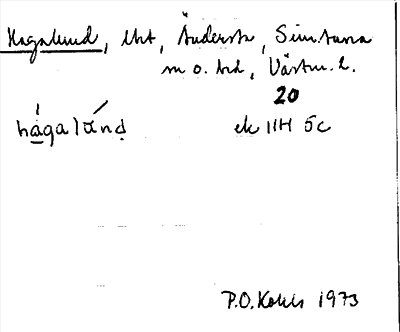 Hagalund, lht, Änderstr, Simtuna
sn o. hd, Västm. l.
20
hágalúnḍ ek 11H 5c
P.O. Kohls 1973